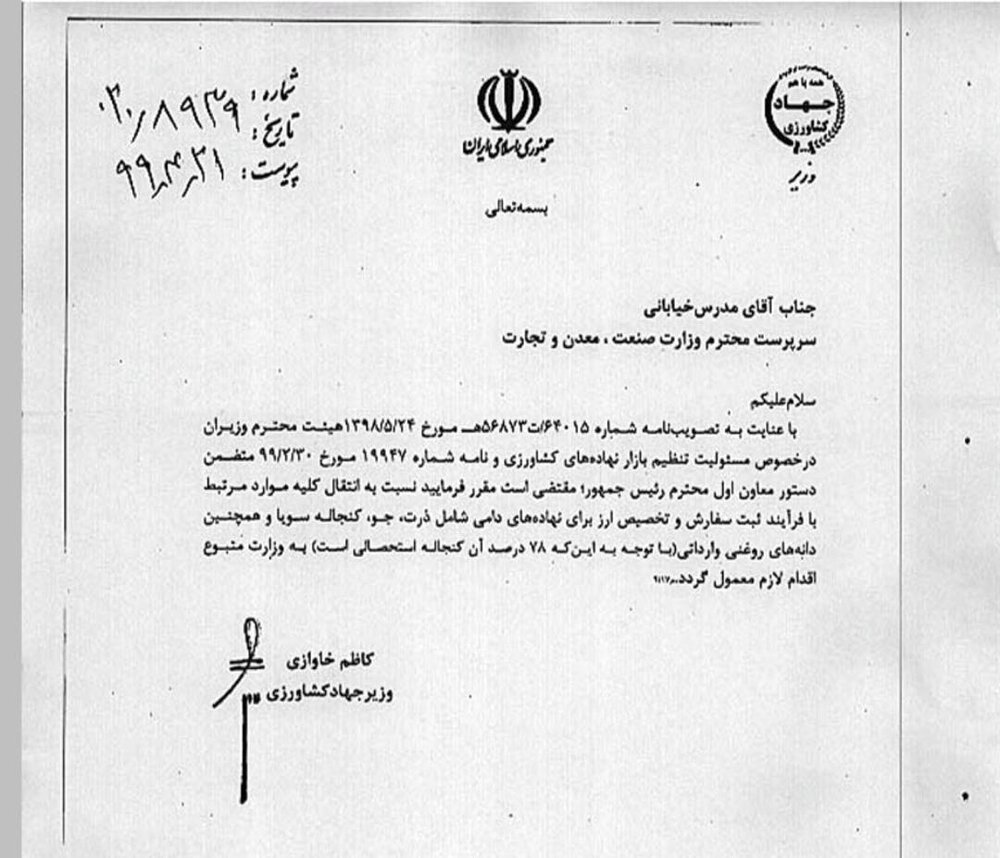 همه با هم
جهاد
کشاورزی
وزیر
جمهوری اسلامی ایران
بسمه‌تعالی
شماره : ۰۲۰/۸۹۳۹
تاریخ : ۹۹/۴/۲۱
پیوست :
جناب آقای مدرس‌خیابانی
سرپرست محترم وزارت صنعت ، معدن و تجارت
سلام‌علیکم
با عنایت به تصویب‌نامه شماره ۶۴۰۱۵/ت۵۶۸۷۳هـ مورخ ۱۳۹۸/۵/۲۴هیئت محترم وزیران
درخصوص مسئولیت تنظیم بازار نهاده‌های کشاورزی و نامه شماره ۱۹۹۴۷ مورخ ۹۹/۲/۳۰ متضمن
دستور معاون اول محترم رئیس جمهور؛ مقتضی است مقرر فرمایید نسبت به انتقال کلیه موارد مرتبط
با فرآیند ثبت سفارش و تخصیص ارز برای نهاده‌های دامی شامل ذرت، جو، کنجاله سویا و همچنین
دانه‌های روغنی وارداتی(با توجه به این‌که ۷۸ درصد آن کنجاله استحصالی است) به وزارت متبوع
اقدام لازم معمول گردد.
کاظم خاوازی
وزیرجهادکشاورزی